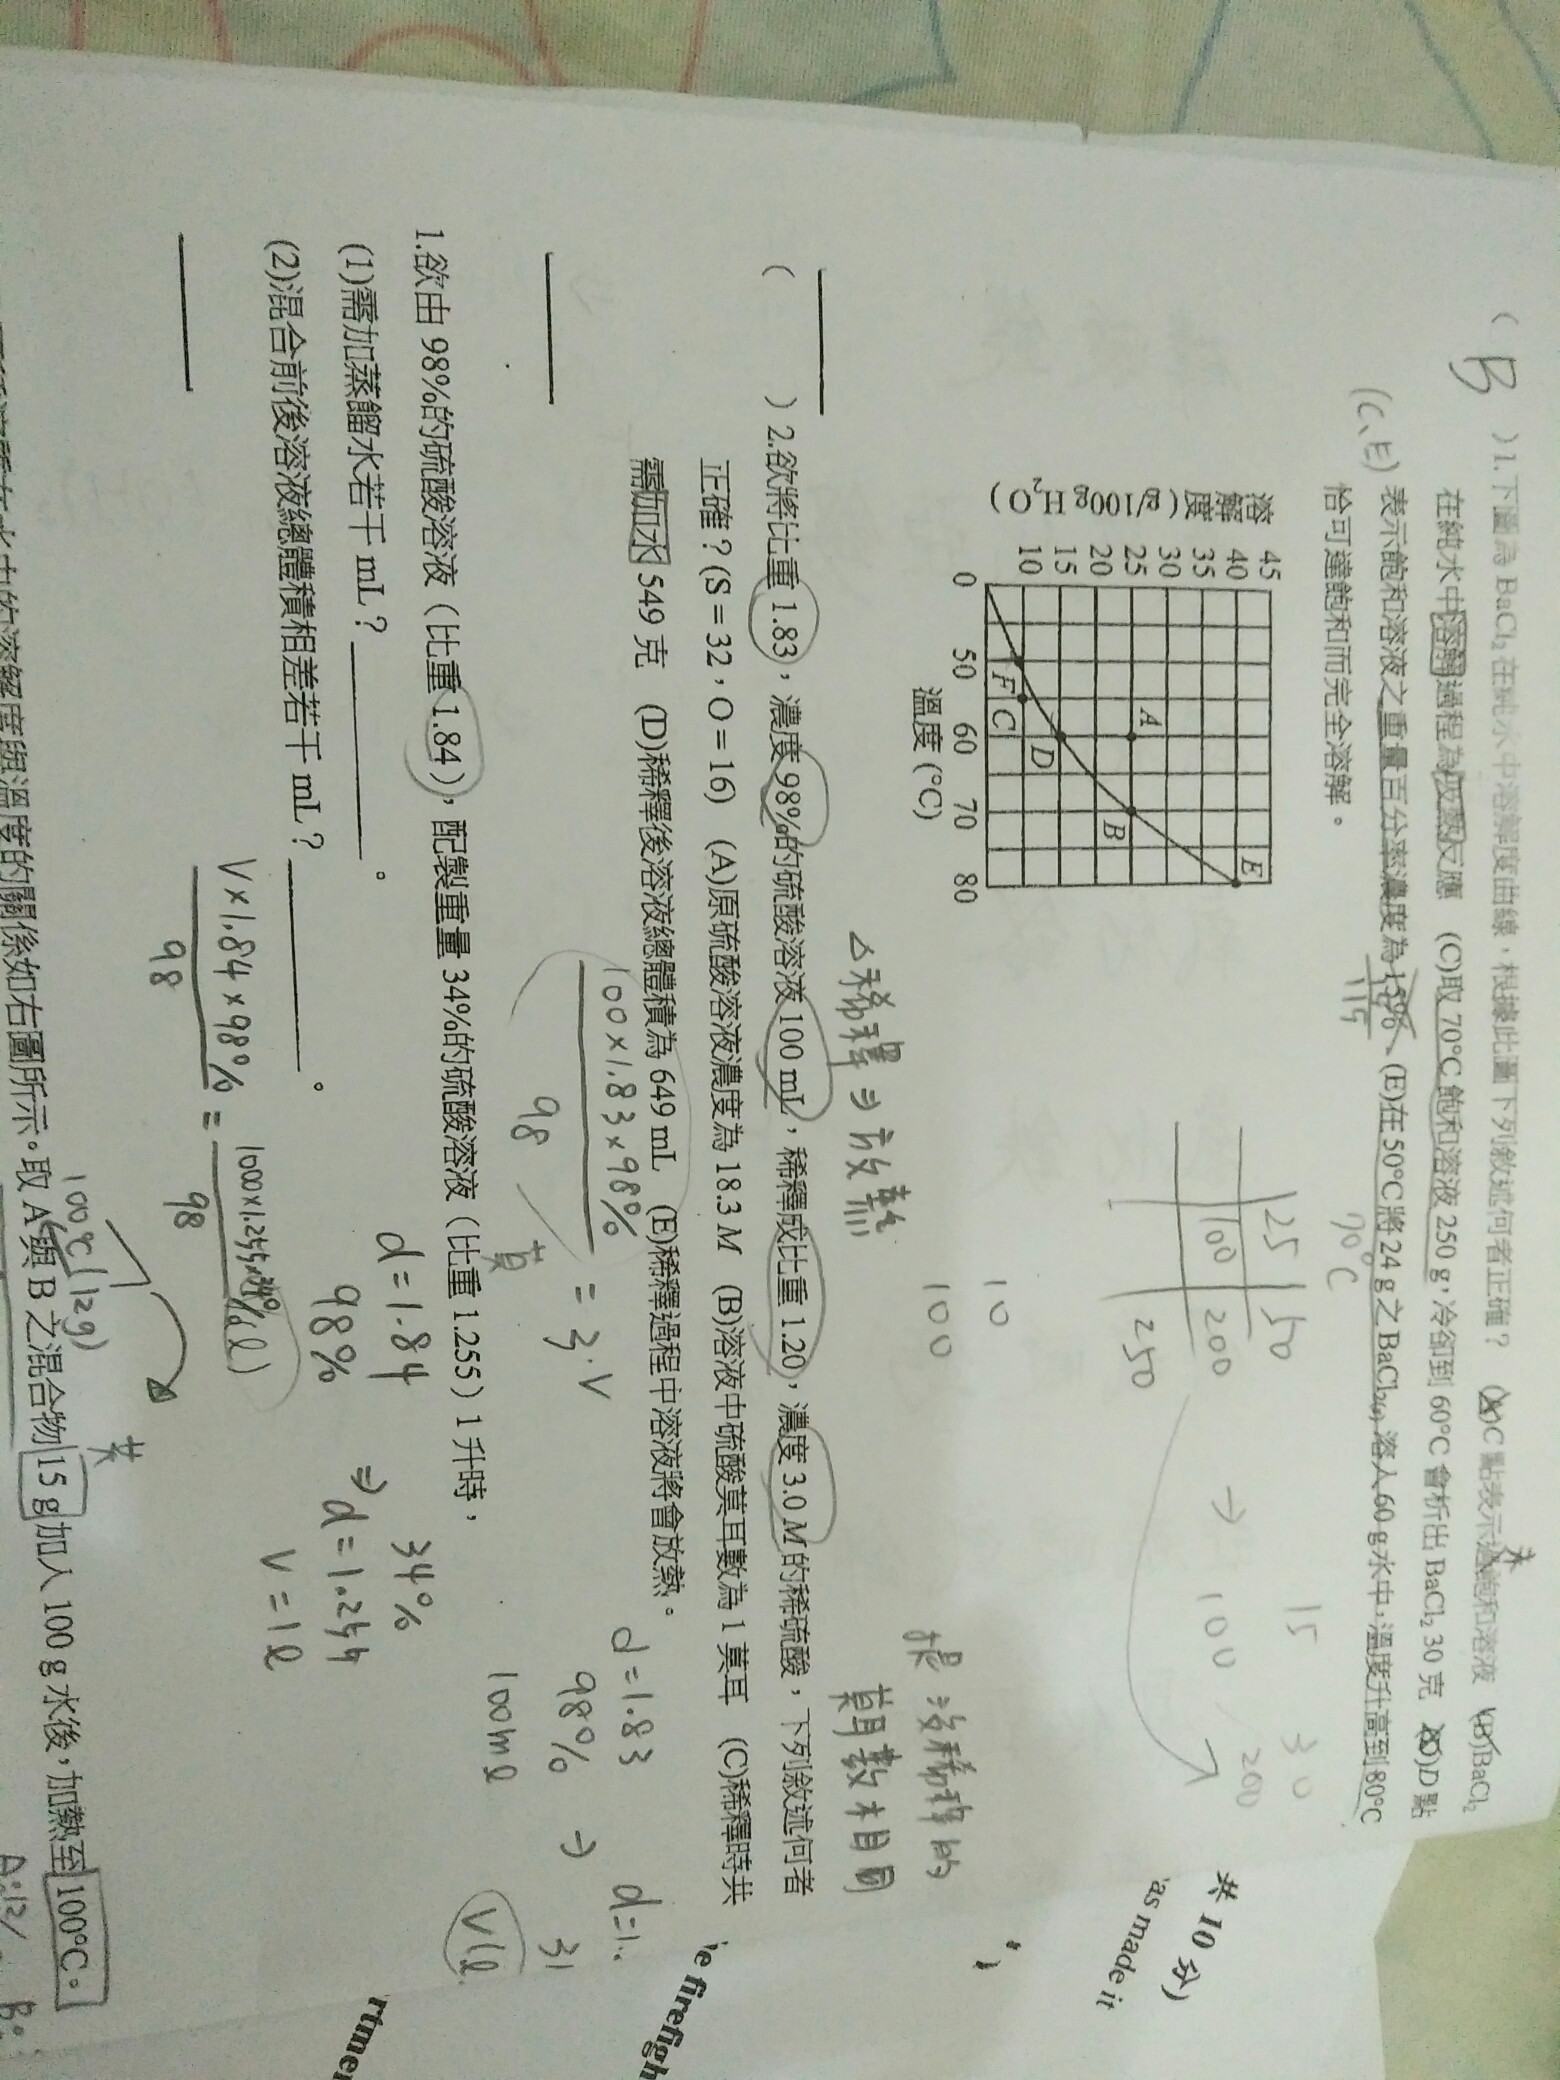 ( B )1.下圖為 BaCl₂ 在純水中溶解度曲線，根據此圖下列敘述何者正確？ (A)C 點表示過飽和溶液 (B)BaCl₂
未
在純水中溶解過程為吸熱反應 (C)取 70°C 飽和溶液 250 g，冷卻到 60°C 會析出 BaCl₂ 30 克 (D)D 點
(C、E) 表示飽和溶液之重量百分率濃度為 15%、(E)在 50°C 將 24 g 之 BaCl₂(s) 溶入 60 g 水中，溫度升高到 80°C
115
恰可達飽和而完全溶解。
70°C
25 50
100 200
250
→
15 30
100 200
溶解度 (g/100g H₂O)
45
40
35
30
25
20
15
10
0 50 60 70 80
A
B
C
D
E
F
溫度 (°C)
10
100
△稀釋⇒放熱
是沒稀釋的
莫耳數相同
( )2.欲將比重 1.83，濃度 98%的硫酸溶液 100 mL，稀釋成比重 1.20，濃度 3.0 M 的稀硫酸，下列敘述何者
正確？(S＝32，O＝16) (A)原硫酸溶液濃度為 18.3 M (B)溶液中硫酸莫耳數為 1 莫耳 (C)稀釋時共
需加水 549 克 (D)稀釋後溶液總體積為 649 mL (E)稀釋過程中溶液將會放熱。
100×1.83×98%
98
= 3·V
莫
d=1.83
98%
100ml
→
d=1..
V(l)
1.欲由 98%的硫酸溶液（比重 1.84），配製重量 34%的硫酸溶液（比重 1.255）1 升時，
(1)需加蒸餾水若干 mL？ 。
(2)混合前後溶液總體積相差若干 mL？ 。
d=1.84
98%
⇒
34%
d=1.255
V=1l
V×1.84×98%
98
=
1000×1.255×34%
98
100°C (12g)
莫
的關係如右圖所示。取 A 與 B 之混合物 15 g 加入 100 g 水後，加熱至 100°C。
共 10 分)
as made it
e firefigh
rtmen